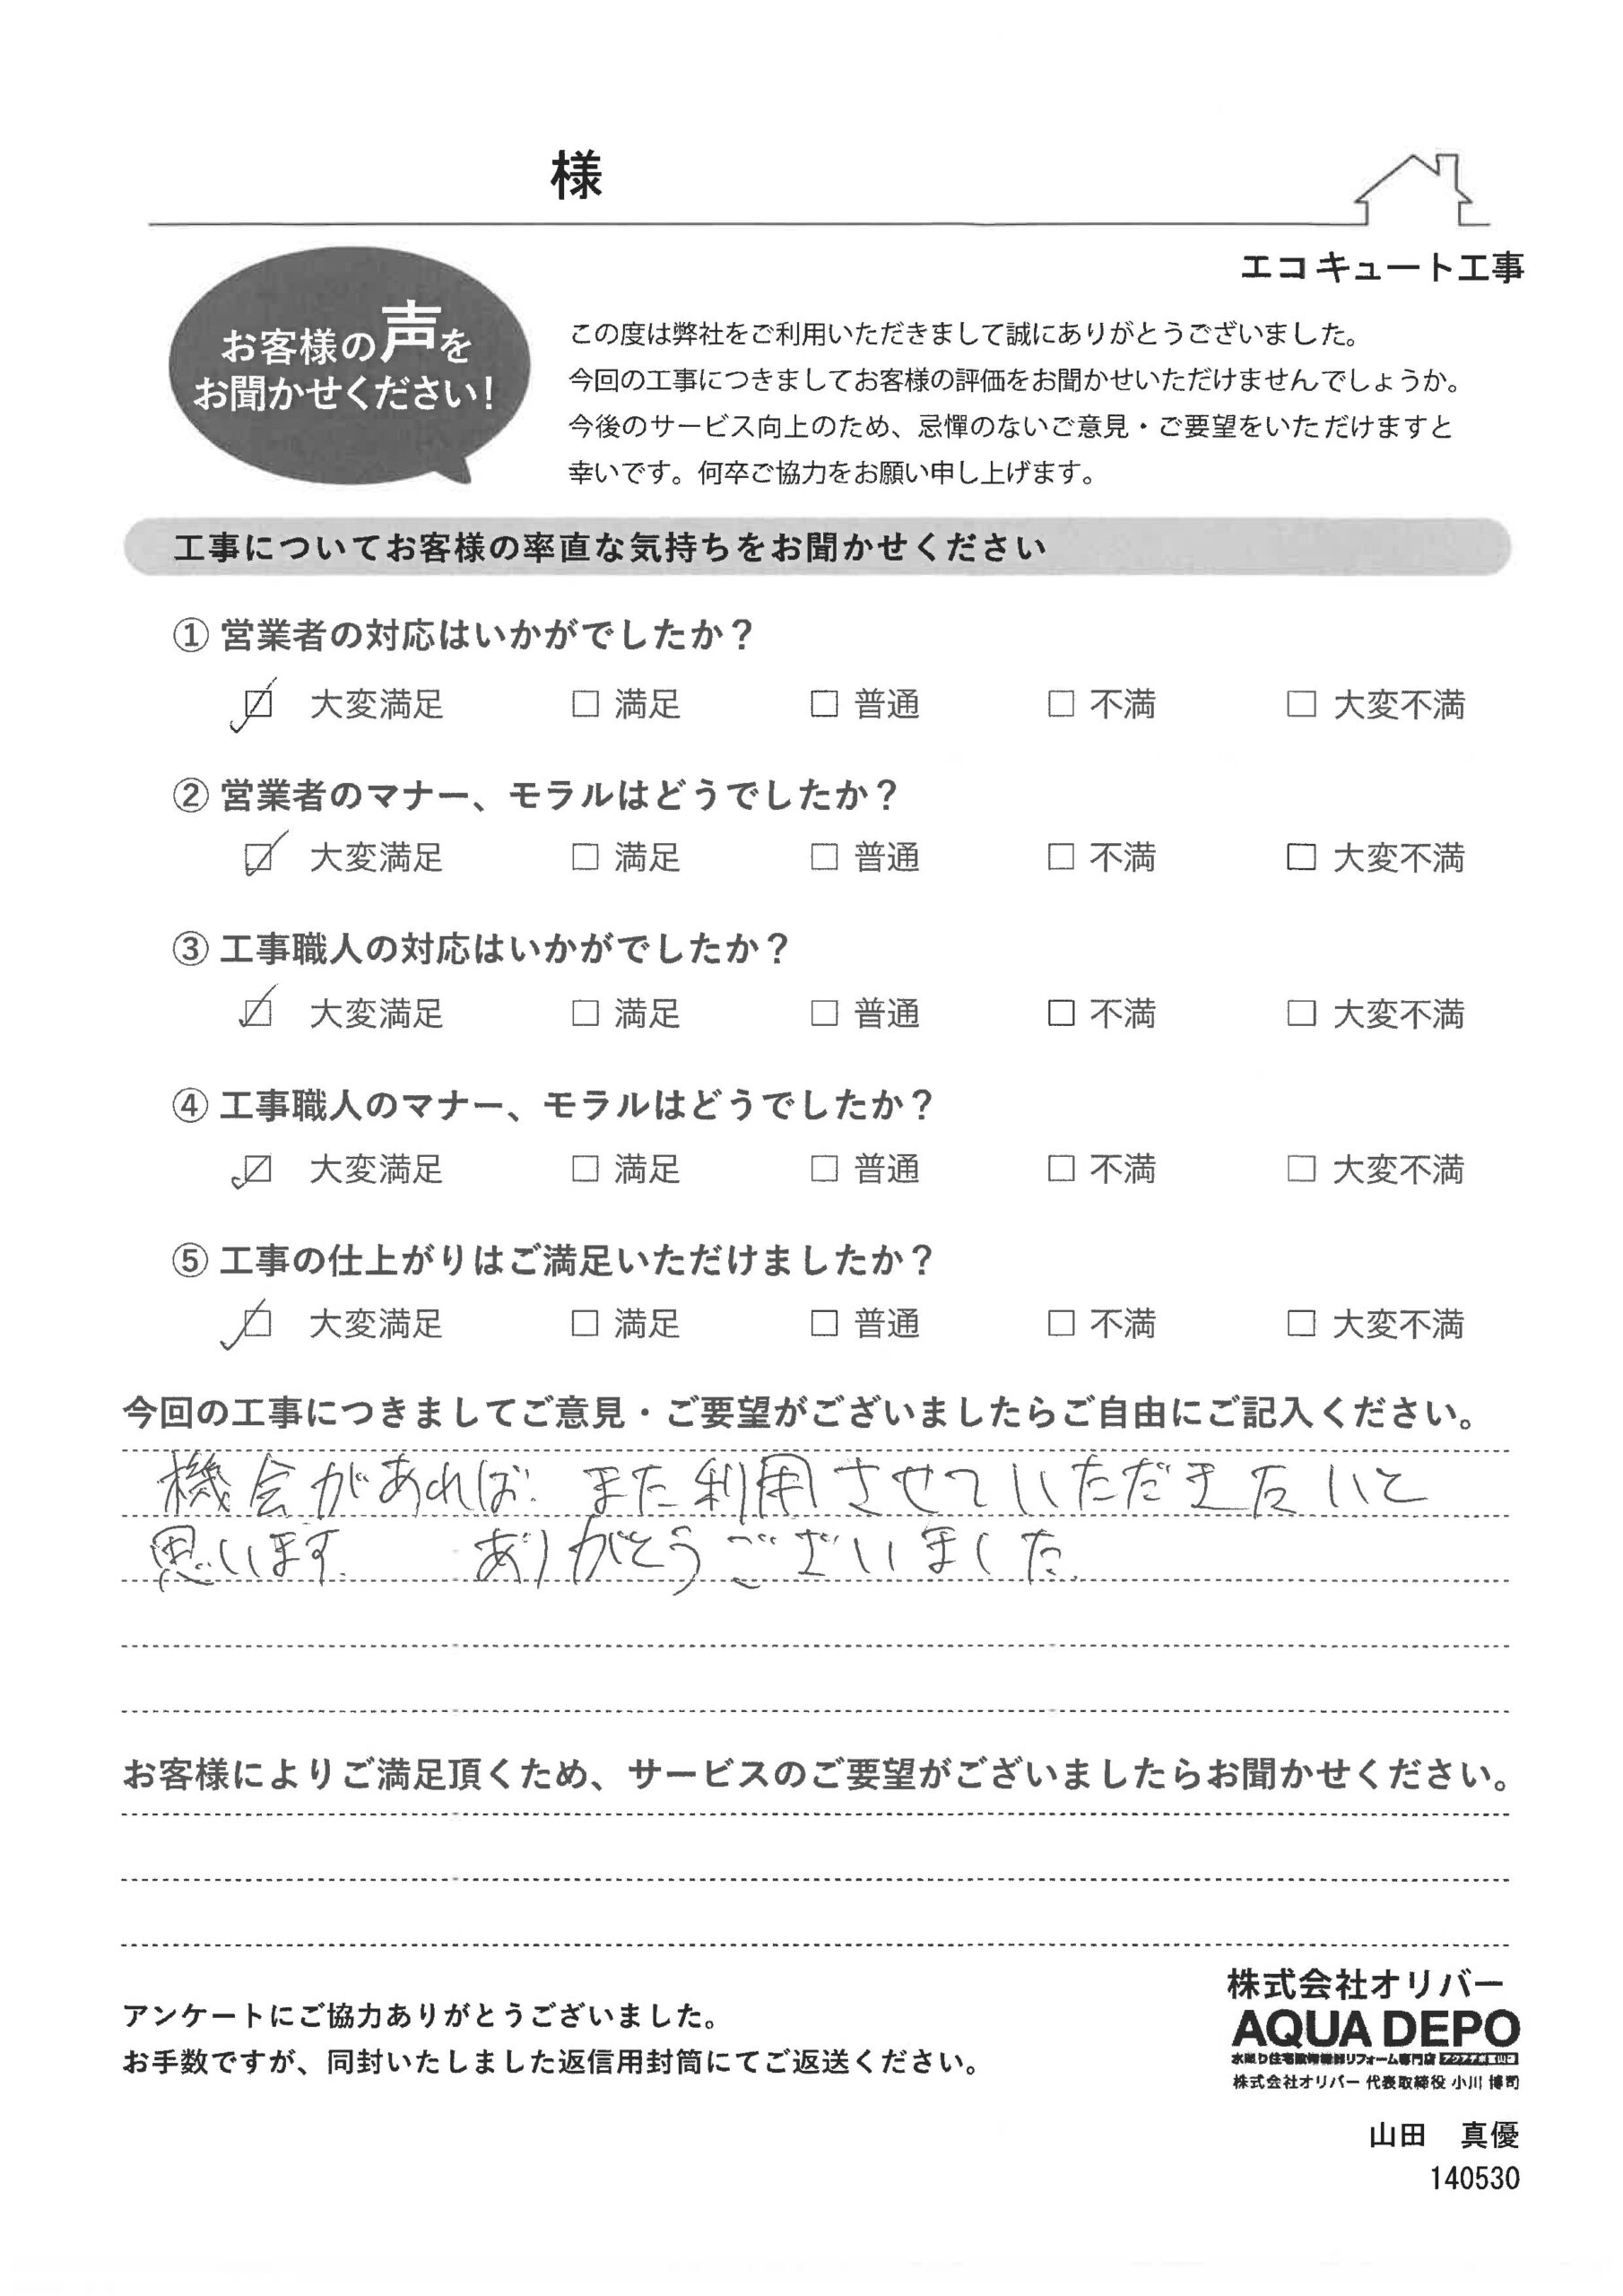 様
エコキュート工事
お客様の声を
お聞かせください！
この度は弊社をご利用いただきまして誠にありがとうございました。
今回の工事につきましてお客様の評価をお聞かせいただけませんでしょうか。
今後のサービス向上のため、忌憚のないご意見・ご要望をいただけますと
幸いです。何卒ご協力をお願い申し上げます。
工事についてお客様の率直な気持ちをお聞かせください
① 営業者の対応はいかがでしたか？
☑ 大変満足 □ 満足 □ 普通 □ 不満 □ 大変不満
② 営業者のマナー、モラルはどうでしたか？
☑ 大変満足 □ 満足 □ 普通 □ 不満 □ 大変不満
③ 工事職人の対応はいかがでしたか？
☑ 大変満足 □ 満足 □ 普通 □ 不満 □ 大変不満
④ 工事職人のマナー、モラルはどうでしたか？
☑ 大変満足 □ 満足 □ 普通 □ 不満 □ 大変不満
⑤ 工事の仕上がりはご満足いただけましたか？
☑ 大変満足 □ 満足 □ 普通 □ 不満 □ 大変不満
今回の工事につきましてご意見・ご要望がございましたらご自由にご記入ください。
機会があれば、また利用させていただきたいと
思います。 ありがとうございました。
お客様によりご満足頂くため、サービスのご要望がございましたらお聞かせください。
アンケートにご協力ありがとうございました。
お手数ですが、同封いたしました返信用封筒にてご返送ください。
株式会社オリバー
AQUA DEPO
リフォーム専門店
株式会社オリバー 代表取締役 小川 博司
山田　真優
140530